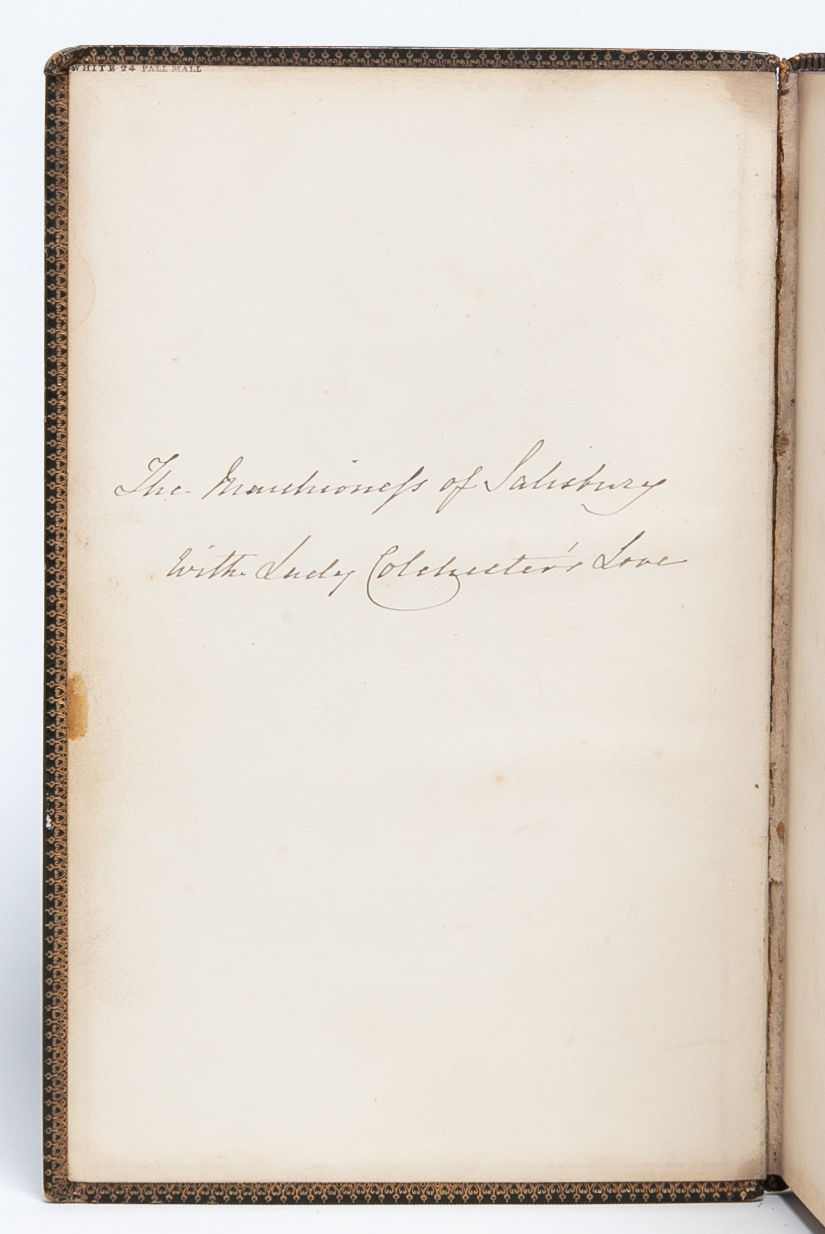 WHITE 24 PALL MALL
The Marchioneſs of Salisbury
With Lady Colchester's Love